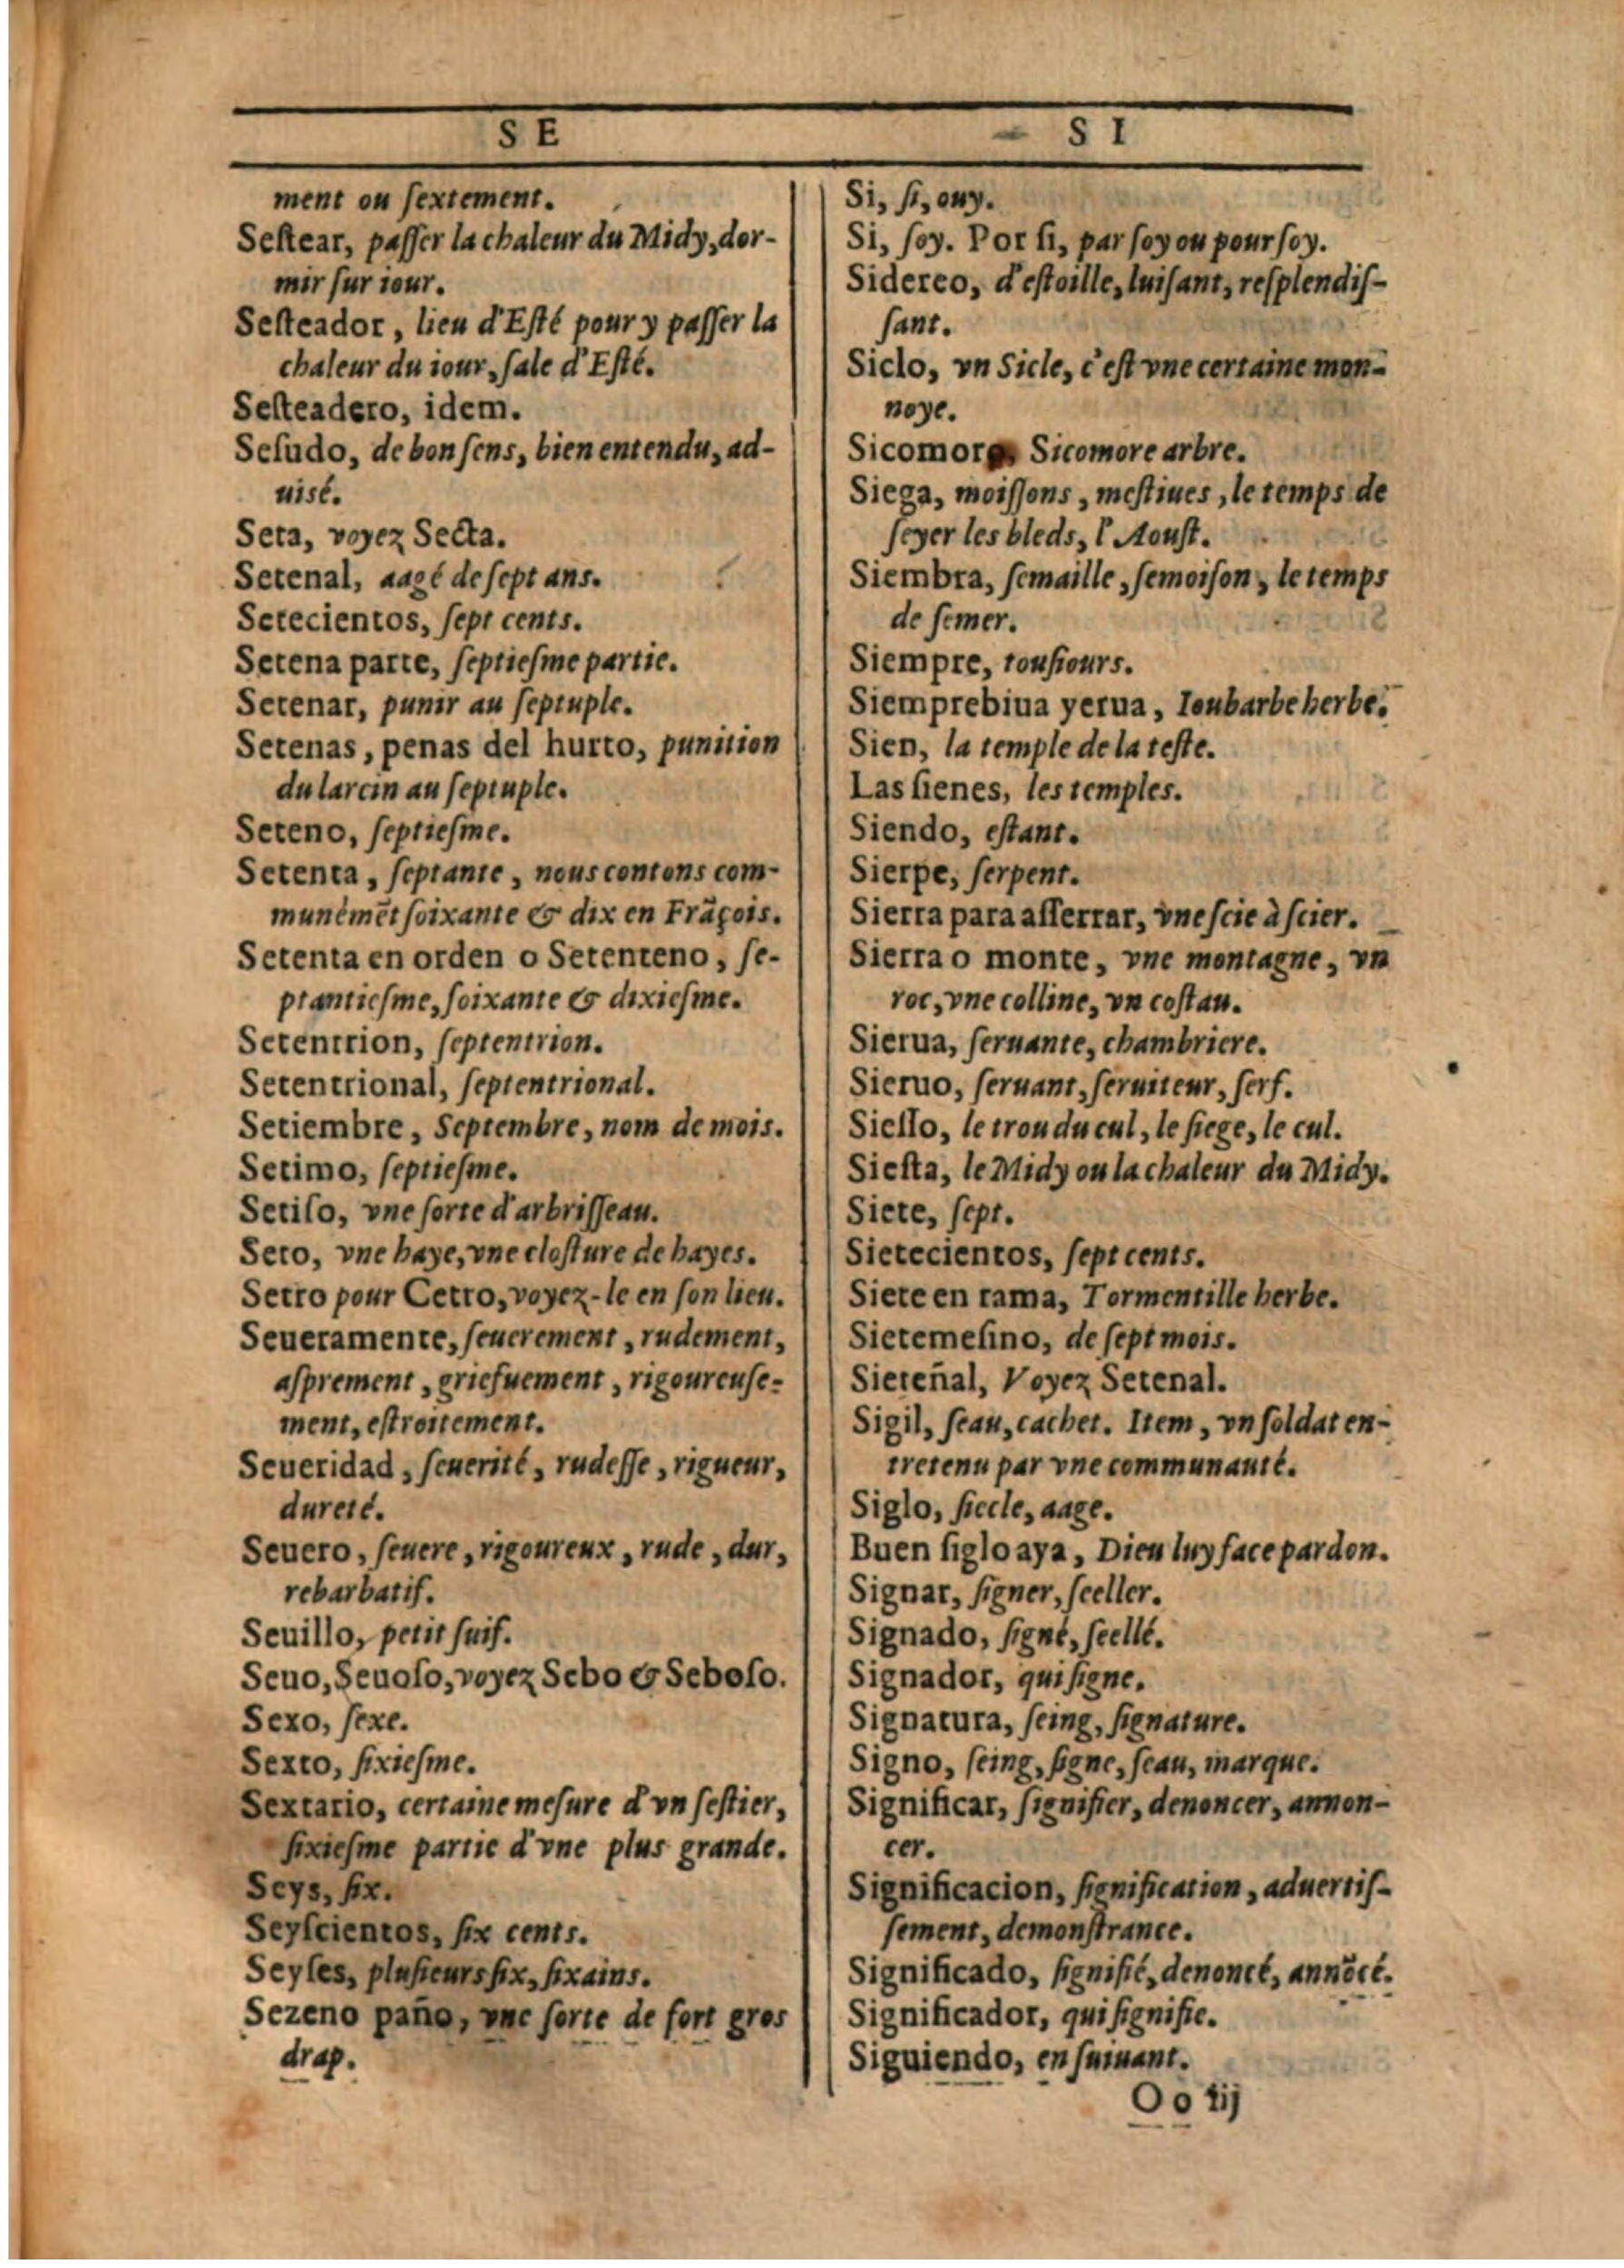 SE
ment ou ſextement.
Seſtear, paſſer la chaleur du Midy, dor-
mir ſur iour.
Seſteador, lieu d'Eſté pour y paſſer la
chaleur du iour, ſale d'Eſté.
Seſteadero, idem.
Seſudo, de bon ſens, bien entendu, ad-
uisé.
Seta, voyez Secta.
Setenal, aagé de ſept ans.
Setecientos, ſept cents.
Setena parte, ſeptieſme partie.
Setenar, punir au ſeptuple.
Setenas, penas del hurto, punition
du larcin au ſeptuple.
Seteno, ſeptieſme.
Setenta, ſeptante, nous contons com-
munémēt ſoixante & dix en Frãçois.
Setenta en orden o Setenteno, ſe-
ptantieſme, ſoixante & dixieſme.
Setentrion, ſeptentrion.
Setentrional, ſeptentrional.
Setiembre, Septembre, nom de mois.
Setimo, ſeptieſme.
Setiſo, vne ſorte d'arbriſſeau.
Seto, vne haye, vne closture de hayes.
Setro pour Cetro, voyez-le en ſon lieu.
Seueramente, ſeuerement, rudement,
aſprement, griefuement, rigoureuſe-
ment, eſtroitement.
Seueridad, ſeuerité, rudeſſe, rigueur,
dureté.
Seuero, ſeuere, rigoureux, rude, dur,
rebarbatif.
Seuillo, petit ſuif.
Seuo, Seuoſo, voyez Sebo & Seboſo.
Sexo, ſexe.
Sexto, ſixieſme.
Sextario, certaine meſure d'vn ſeſtier,
ſixieſme partie d'vne plus grande.
Seys, ſix.
Seyſcientos, ſix cents.
Seyſes, pluſieurs ſix, ſixains.
Sezeno paño, vne ſorte de fort gros
drap.
SI
Si, ſi, ouy.
Si, ſoy. Por ſi, par ſoy ou pour ſoy.
Sidereo, d'eſtoille, luiſant, reſplendiſ-
ſant.
Siclo, vn Sicle, c'eſt vne certaine mon-
noye.
Sicomoro, Sicomore arbre.
Siega, moiſſons, meſtiues, le temps de
ſeyer les bleds, l'Aouſt.
Siembra, ſemaille, ſemoiſon, le temps
de ſemer.
Siempre, touſiours.
Siemprebiua yerua, Ioubarbe herbe.
Sien, la temple de la teſte.
Las ſienes, les temples.
Siendo, eſtant.
Sierpe, ſerpent.
Sierra para aſſerrar, vne ſcie à ſcier.
Sierra o monte, vne montagne, vn
roc, vne colline, vn coſtau.
Sierua, ſeruante, chambriere.
Sieruo, ſeruant, ſeruiteur, ſerf.
Sieſſo, le trou du cul, le ſiege, le cul.
Sieſta, le Midy ou la chaleur du Midy.
Siete, ſept.
Sietecientos, ſept cents.
Siete en rama, Tormentille herbe.
Sietemeſino, de ſept mois.
Sieteñal, Voyez Setenal.
Sigil, ſeau, cachet. Item, vn ſoldat en-
tretenu par vne communauté.
Siglo, ſiecle, aage.
Buen ſiglo aya, Dieu luy face pardon.
Signar, ſigner, ſceller.
Signado, ſigné, ſcellé.
Signador, qui ſigne.
Signatura, ſeing, ſignature.
Signo, ſeing, ſigne, ſeau, marque.
Significar, ſignifier, denoncer, annon-
cer.
Significacion, ſignification, aduertiſ-
ſement, demonſtrance.
Significado, ſignifié, denoncé, annõcé.
Significador, qui ſignifie.
Siguiendo, en ſuiuant.
Oo iij